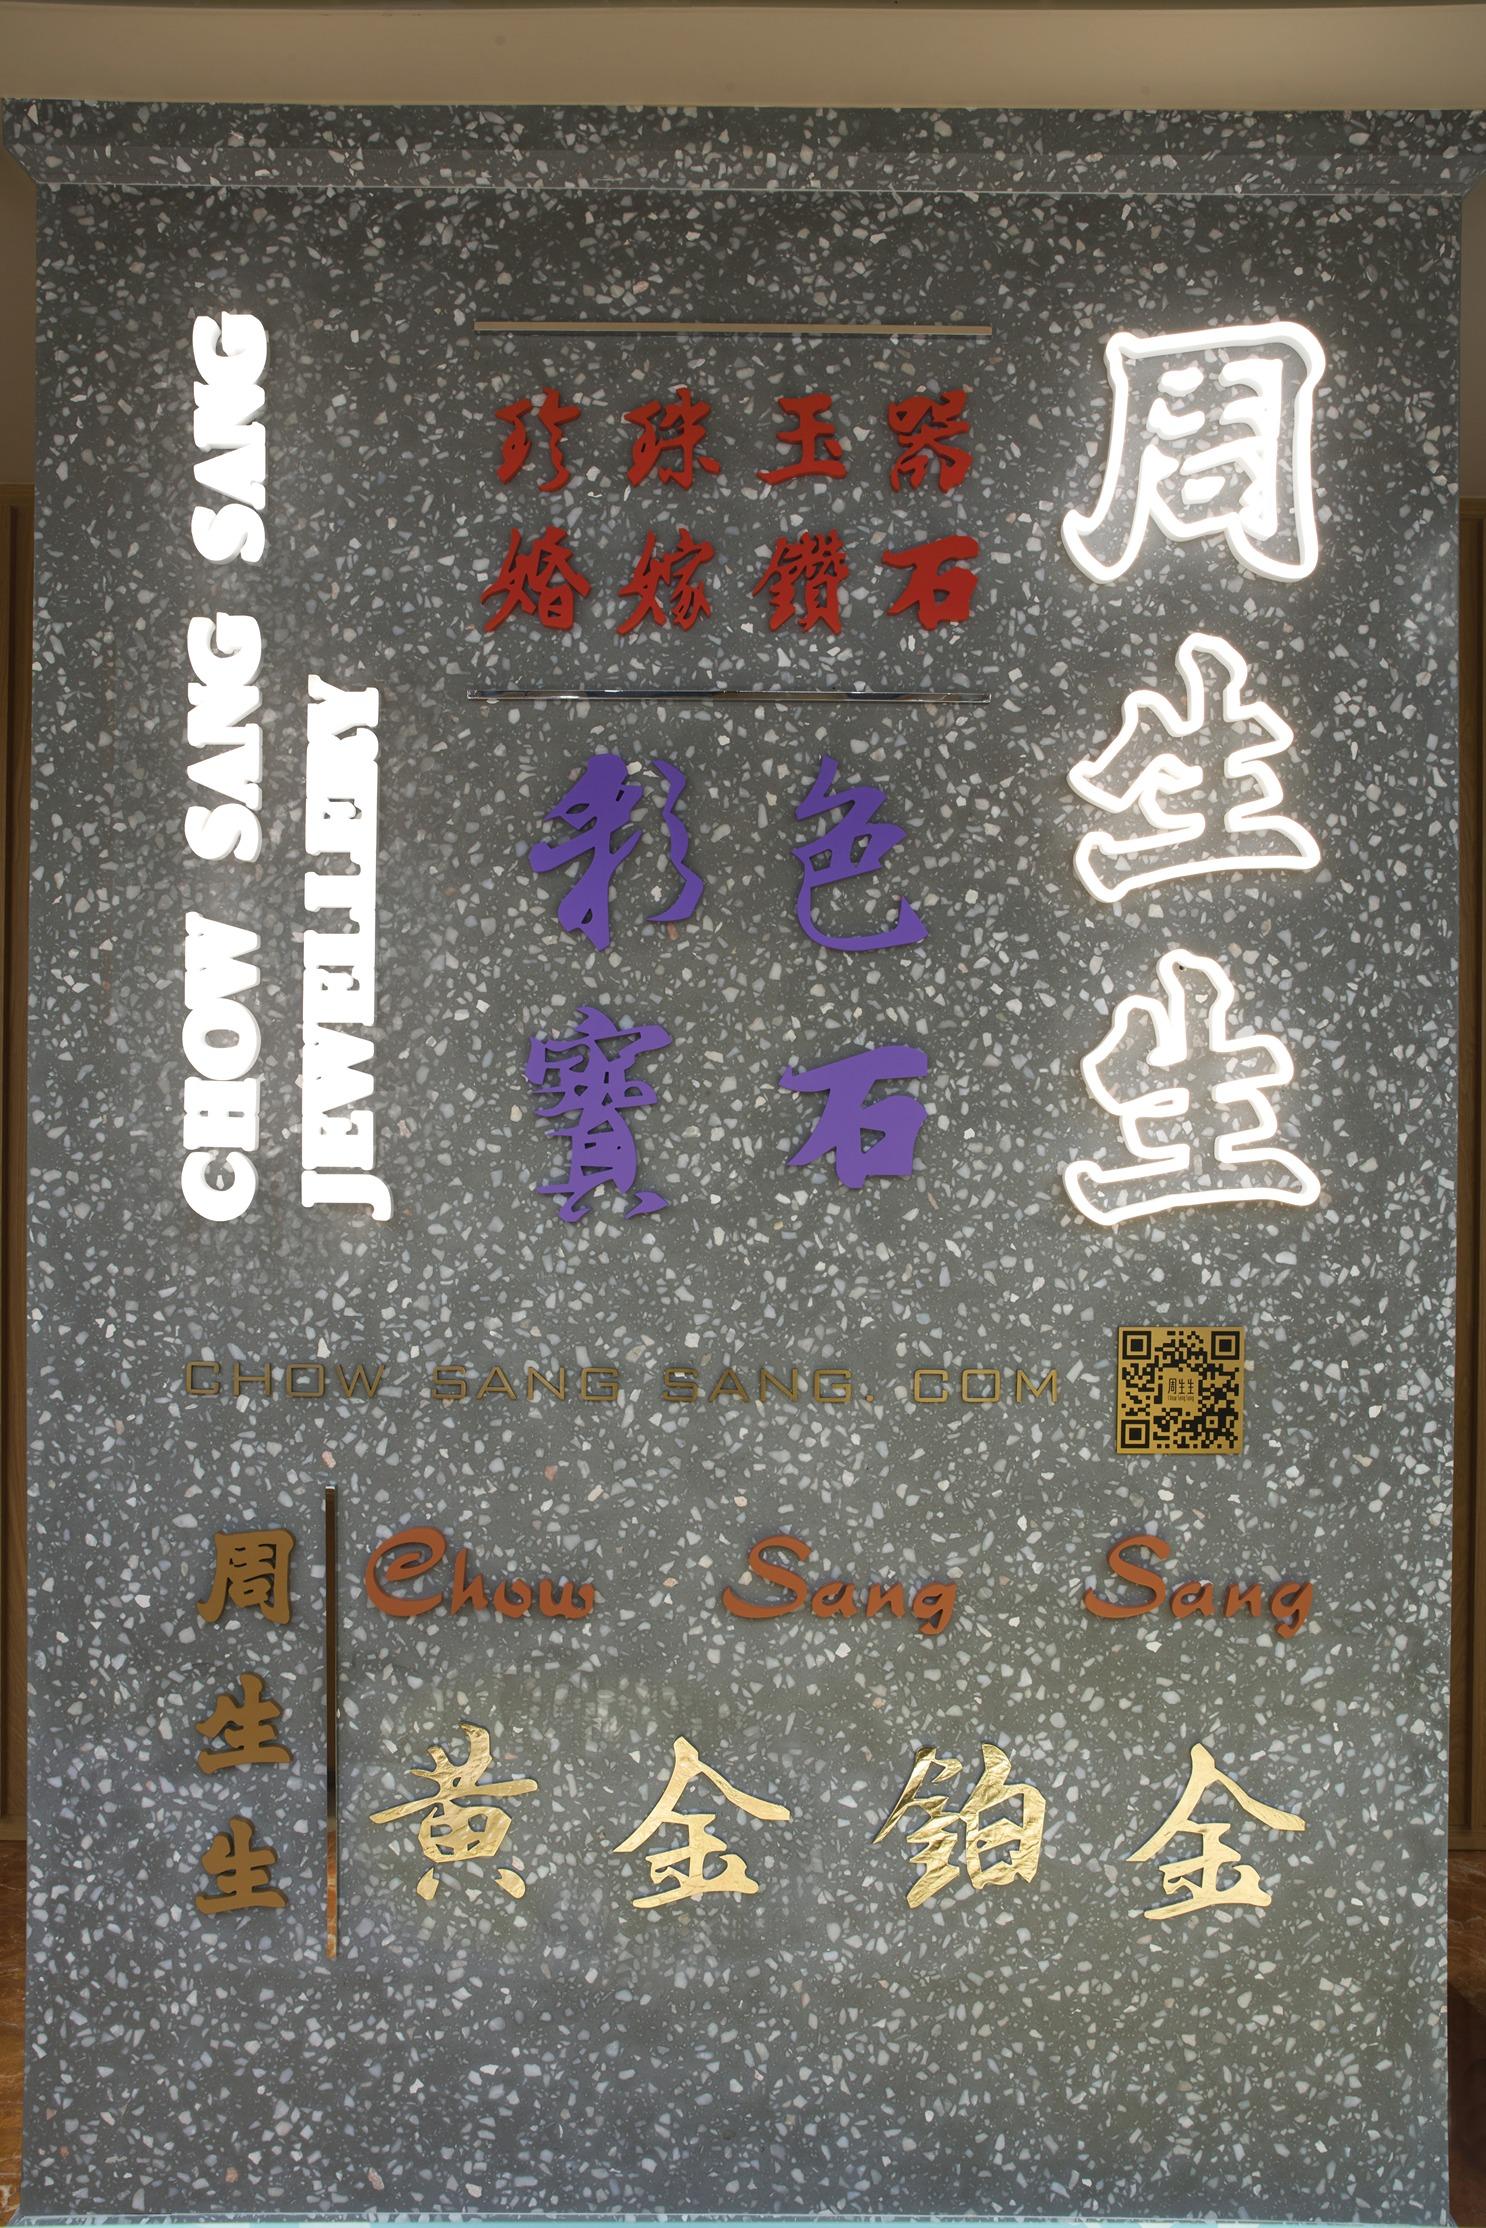 CHOW SANG SANG
JEWELLERY
珍珠玉器
婚嫁鑽石
彩色
寶石
周生生
CHOW SANG SANG.COM
周生生
Chow Sang Sang
周生生
Chow Sang Sang
黃金鉑金